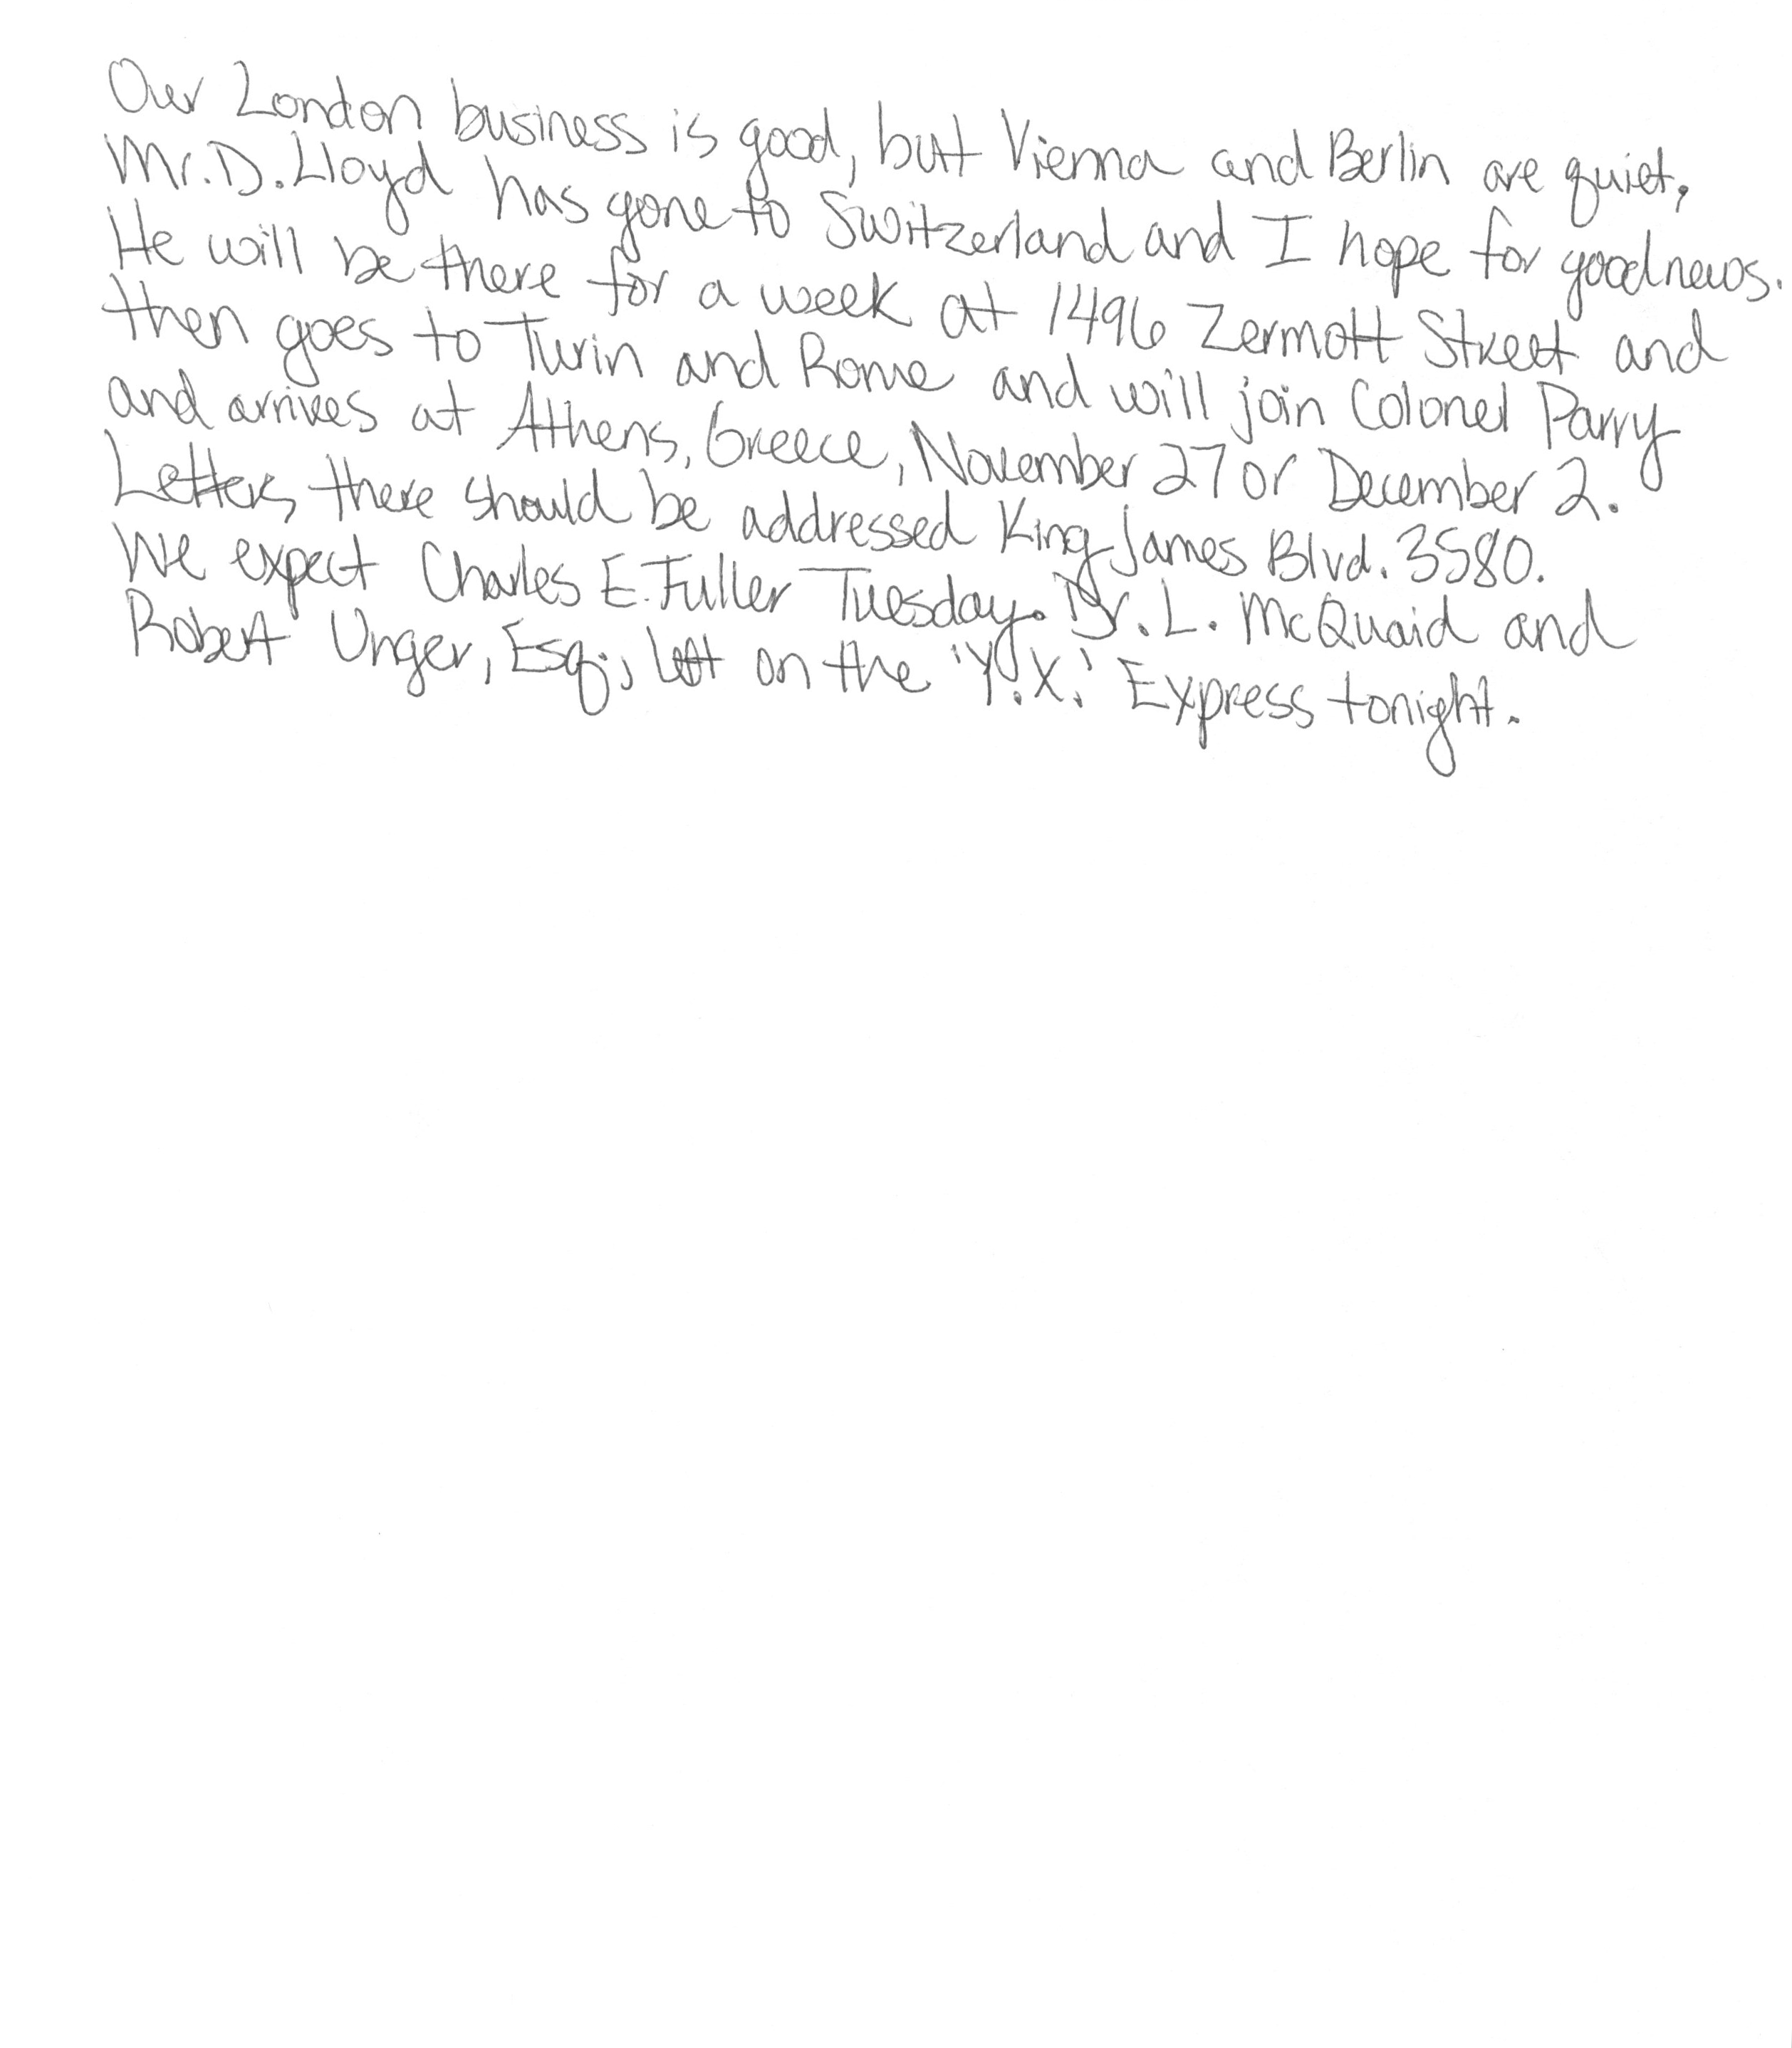 Our London business is good, but Vienna and Berlin are quiet.
Mr. D. Lloyd has gone to Switzerland and I hope for good news.
He will be there for a week at 1496 Zermott Street and
then goes to Turin and Rome and will join Colonel Parry
and arrives at Athens, Greece, November 27 or December 2.
Letters there should be addressed King James Blvd. 3580.
We expect Charles E. Fuller Tuesday. Dr. L. McQuaid and
Robert Unger, Esq., left on the 'Y.X.' Express tonight.